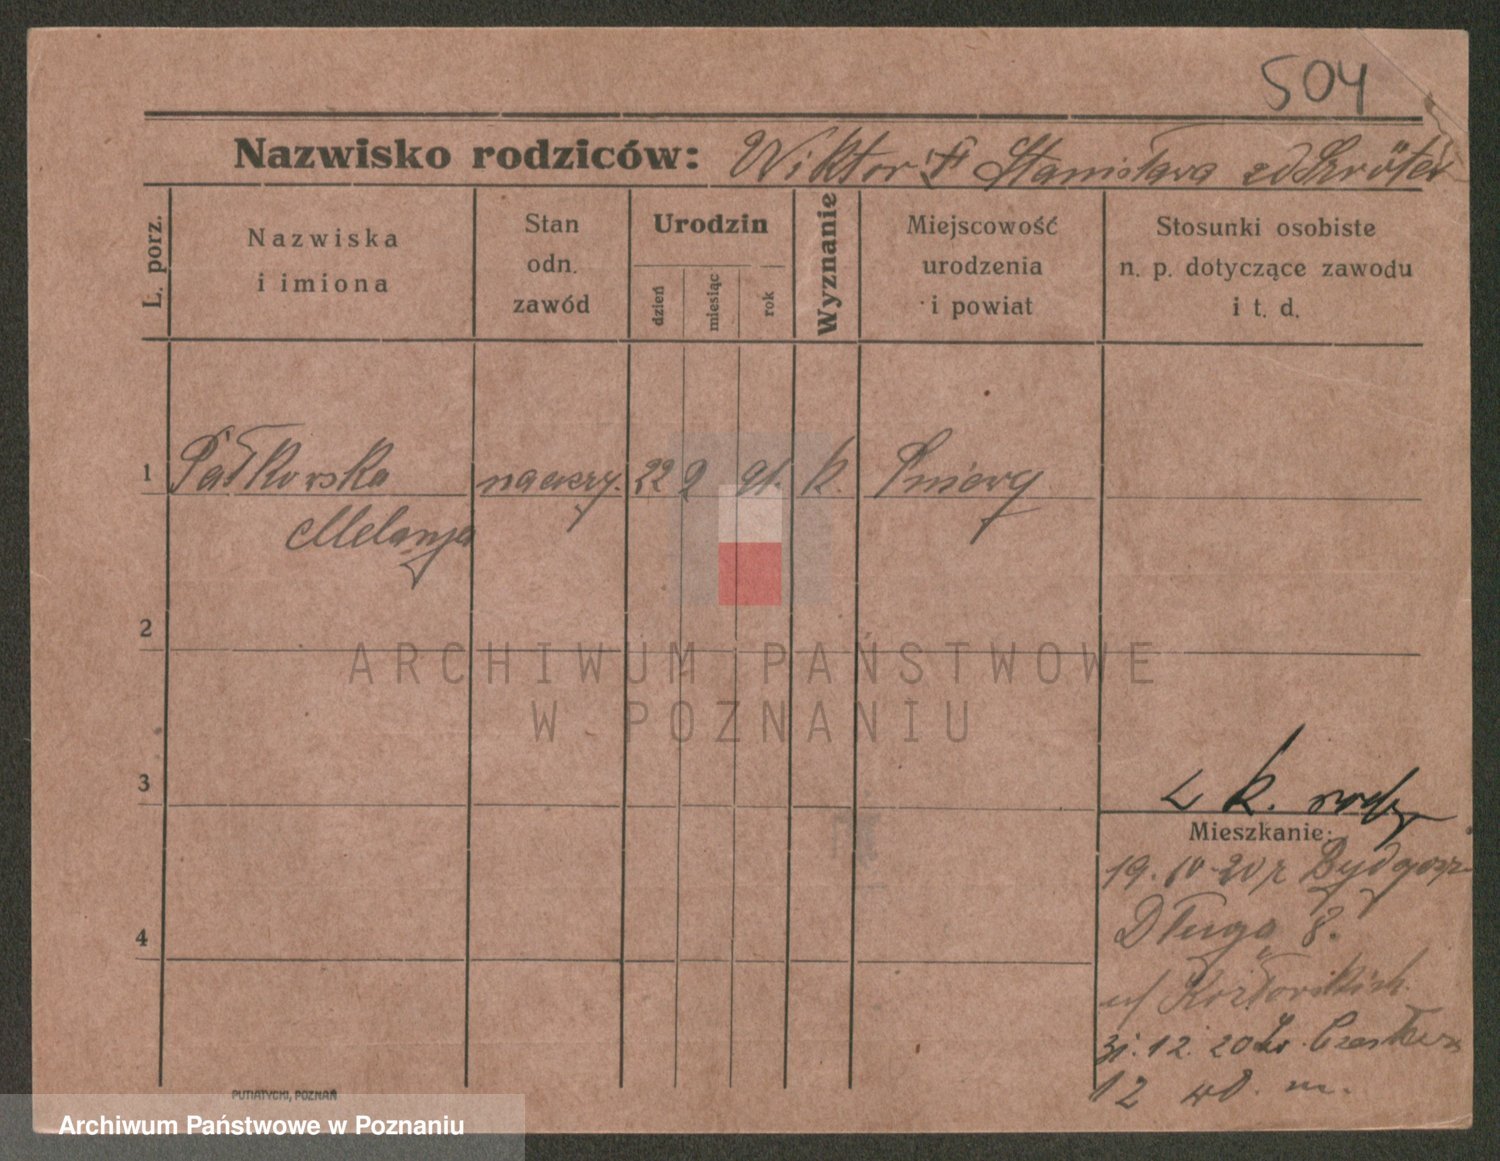 504
Nazwisko rodziców: Wiktor Stanisława zd Szröter
L. porz.
Nazwiska i imiona
Stan odn. zawód
Urodzin
dzień
miesiąc
rok
Wyznanie
Miejscowość urodzenia i powiat
Stosunki osobiste n. p. dotyczące zawodu i t. d.
1 Pałkowska nauczy. 22 2 91. k. Śmierq
Melanja
2
ARCHIWUM PAŃSTWOWE
W POZNANIU
3
z k. rodz
Mieszkanie:
19. 10 20 r Bydgosz
Długa 8.
4
u/ Kozłowskich.
31. 12. 20
12 m.
PUTIATYCKI, POZNAŃ
Archiwum Państwowe w Poznaniu